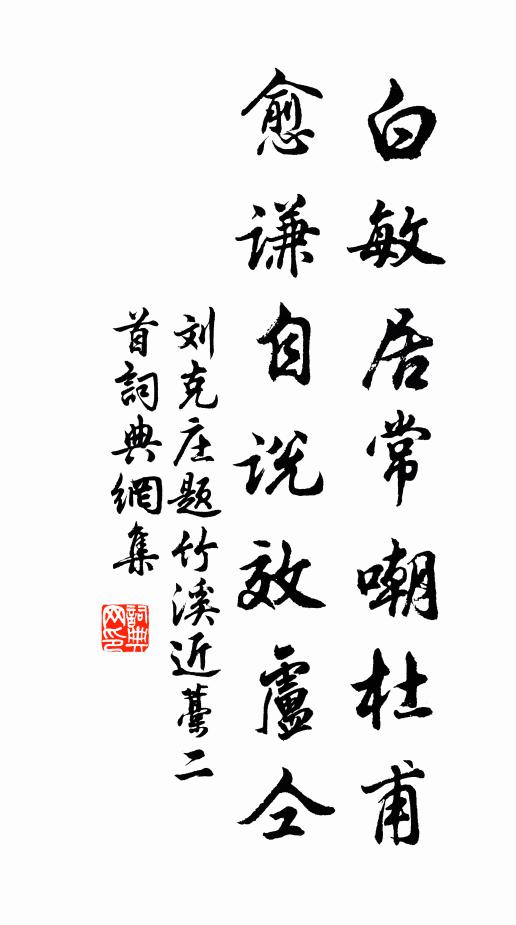 白敏居常嘲杜甫
愈谦自说效盧仝
刘克庄题竹溪近藁二
首詞典網集
詞典
网印